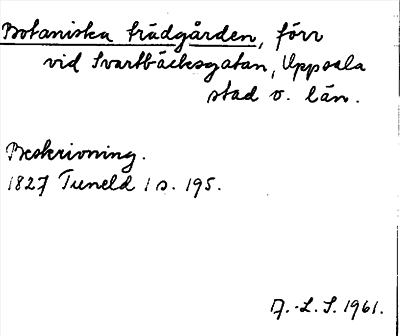 Botaniska trädgården, förr
vid Svartbäcksgatan, Uppsala
stad o. län.
Beskrivning.
1827 Tuneld 1 s. 195.
D.-L. S. 1961.